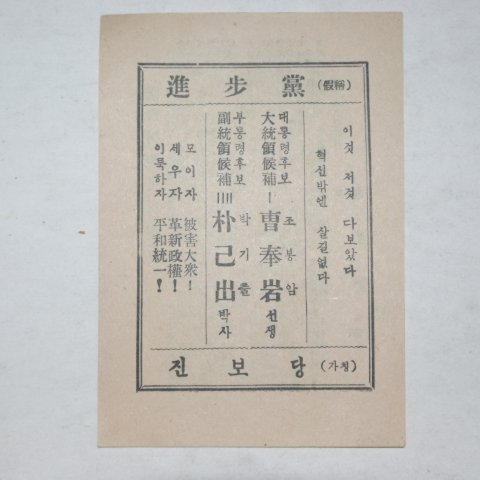 進步黨 (假稱)
이것 저것 다보았다
혁신밖엔 살길없다
대통령후보 조봉암
大統領候補 | 曹奉岩 선생
부통령후보 박기출
副統領候補 |||| 朴己出 박사
모이자 被害大衆!
세우자 革新政權!
이룩하자 平和統一!
진보당 (가칭)